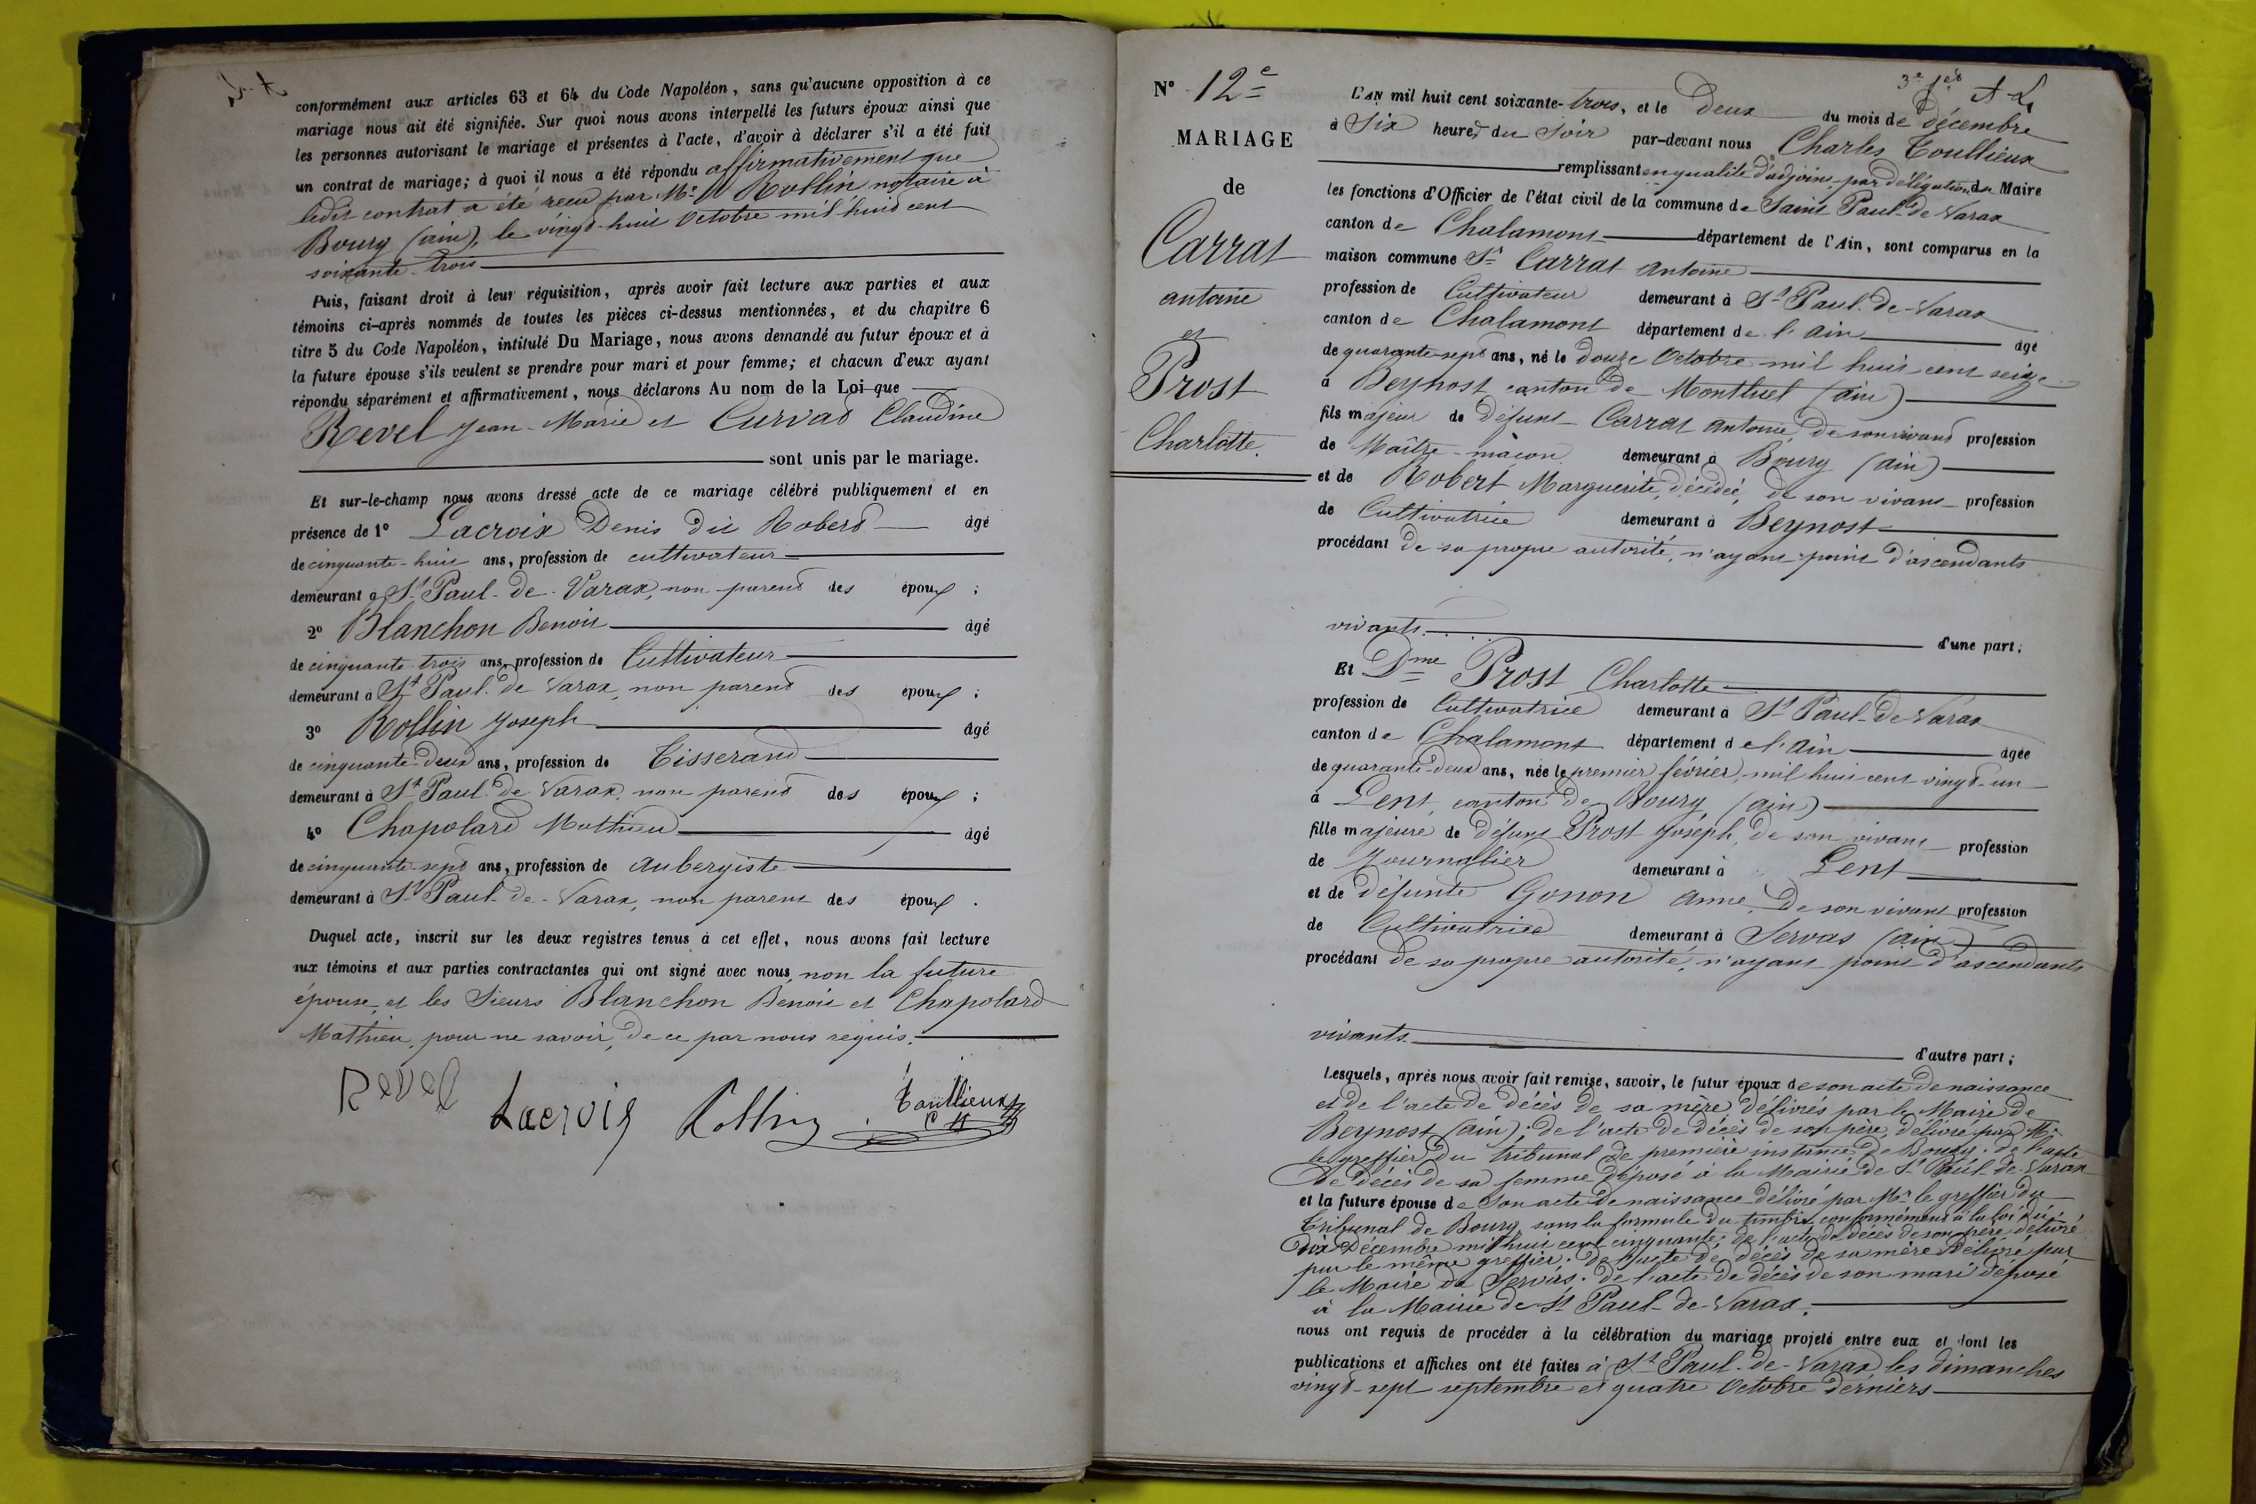 conformément aux articles 63 et 64 du Code Napoléon, sans qu'aucune opposition à ce
mariage nous ait été signifiée. Sur quoi nous avons interpellé les futurs époux ainsi que
les personnes autorisant le mariage et présentes à l'acte, d'avoir à déclarer s'il a été fait
un contrat de mariage; à quoi il nous a été répondu affirmativement que
ledit contrat a été recu par Me Rollin notaire à
Bourg (ain), le vingt-huit Octobre mil huit cent
soixante-trois
Puis, faisant droit à leur réquisition, après avoir fait lecture aux parties et aux
témoins ci-après nommés de toutes les pièces ci-dessus mentionnées, et du chapitre 6
titre 5 du Code Napoléon, intitulé Du Mariage, nous avons demandé au futur époux et à
la future épouse s'ils veulent se prendre pour mari et pour femme; et chacun d'eux ayant
répondu séparément et affirmativement, nous déclarons Au nom de la Loi que
Revel Jean-Marie et Curvat Claudine
sont unis par le mariage.
Et sur-le-champ nous avons dressé acte de ce mariage célébré publiquement et en
présence de 1° Lacroix Denis dit Robert âgé
de cinquante-huit ans, profession de cultivateur
demeurant à St Paul-de-Varax, non parent des époux ;
2° Blanchon Benoit âgé
de cinquante-trois ans, profession de Cultivateur
demeurant à St Paul-de-Varax, non parent des époux ;
3° Rollin Joseph âgé
de cinquante-deux ans, profession de Tisserand
demeurant à St Paul-de-Varax, non parent des époux ;
4° Chapolard Mathieu âgé
de cinquante-sept ans, profession de aubergiste
demeurant à St Paul-de-Varax, non parent des époux .
Duquel acte, inscrit sur les deux registres tenus à cet effet, nous avons fait lecture
aux témoins et aux parties contractantes qui ont signé avec nous, non la future
épouse, et les Sieurs Blanchon Benoit et Chapolard
Mathieu, pour ne savoir, de ce par nous requis.
Revel Lacroix Rollin Toullieux
N° 12e
MARIAGE
de
Carrat
antoine
et
Prost
Charlotte.
L'AN mil huit cent soixante-trois, et le Deux du mois de Décembre
à Six heures du Soir par-devant nous Charles Toullieux
remplissant en qualité d'adjoint, par délégation du Maire
les fonctions d'Officier de l'état civil de la commune de Saint Paul-de-Varax
canton de Chalamont département de l'Ain, sont comparus en la
maison commune Sr Carrat antoine
profession de Cultivateur demeurant à St Paul-de-Varax
canton de Chalamont département de l'ain âgé
de quarante-sept ans, né le douze Octobre mil huit cent seize
à Beynost, canton de Montluel (ain)
fils majeur de défunt Carrat antoine, de son vivant profession
de Maître-maçon demeurant à Bourg (ain)
et de Robert Marguerite, décédée, de son vivant profession
de Cultivatrice demeurant à Beynost
procédant de sa propre autorité, n'ayant point d'ascendants
vivants. d'une part;
Et Dme Prost Charlotte
profession de Cultivatrice demeurant à St Paul-de-Varax
canton de Chalamont département de l'ain âgée
de quarante-deux ans, née le premier février, mil huit cent vingt-un
à Lent, canton de Bourg (ain)
fille majeure de défunt Prost Joseph, de son vivant profession
de Journalier demeurant à Lent
et de défunte Gonon anne, de son vivant profession
de Cultivatrice demeurant à Servas (ain)
procédant de sa propre autorité, n'ayant point d'ascendants
vivants. d'autre part;
Lesquels, après nous avoir fait remise, savoir, le futur époux de son acte de naissance
et de l'acte de décès de sa mère, délivrés par le Maire de
Beynost (ain); de l'acte de décès de son père, délivré par Mr
le greffier du tribunal de première instance de Bourg; de l'acte
de décès de sa femme déposé à la Mairie de St Paul-de-Varax
et la future épouse de Son acte de naissance délivré par Mr le greffier du
Tribunal de Bourg, sous la formule du timbre conformément à la loi du
dix Décembre mil huit cent cinquante; de l'acte de décès de son père délivré
par le même greffier; de l'acte de décès de sa mère délivré par
le Maire de Servas; de l'acte de décès de son mari déposé
à la Mairie de St Paul-de-Varax.
nous ont requis de procéder à la célébration du mariage projeté entre eux et dont les
publications et affiches ont été faites à St Paul-de-Varax les dimanches
vingt-sept septembre et quatre Octobre derniers